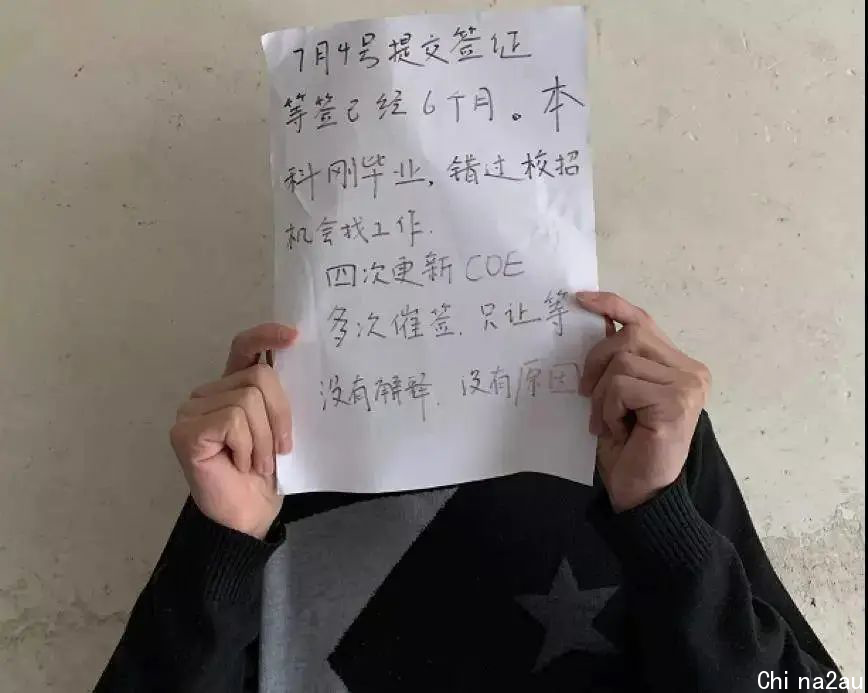 7月4号提交签证
等签已经6个月。本
科刚毕业,错过校招
机会找工作.
四次更新COE
多次催签.只让等
没有解释.没有原因
China2au